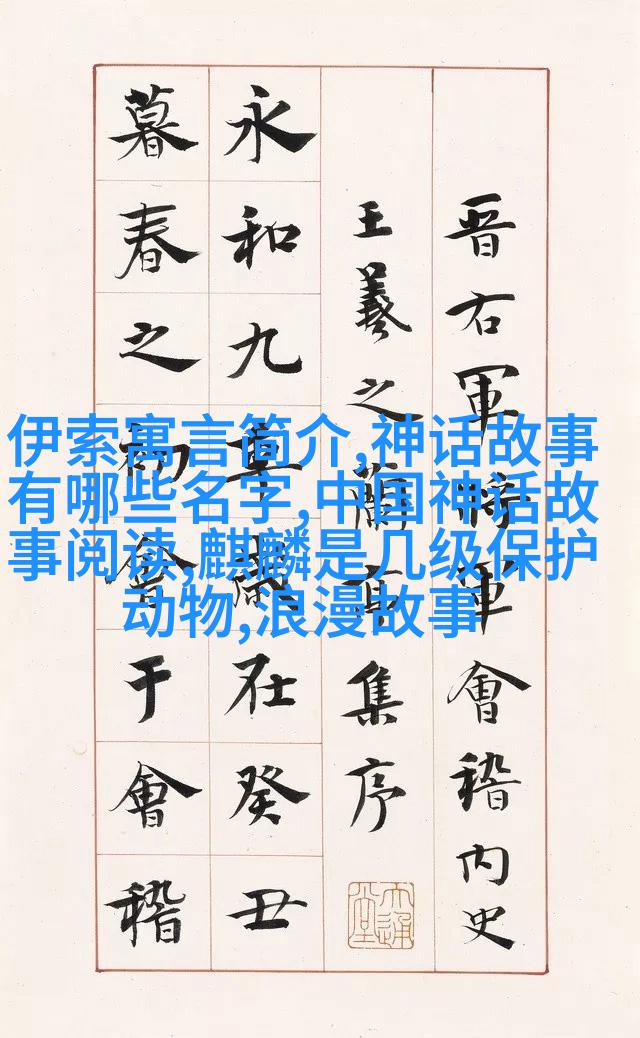 晋右軍將軍會稽内史
王羲之蘭亭集序
永和九年歲在癸丑
暮春之初會于會稽
伊索寓言简介,神话故事
有哪些名字,中国神话故
事阅读,麒麟是几级保护
动物,浪漫故事